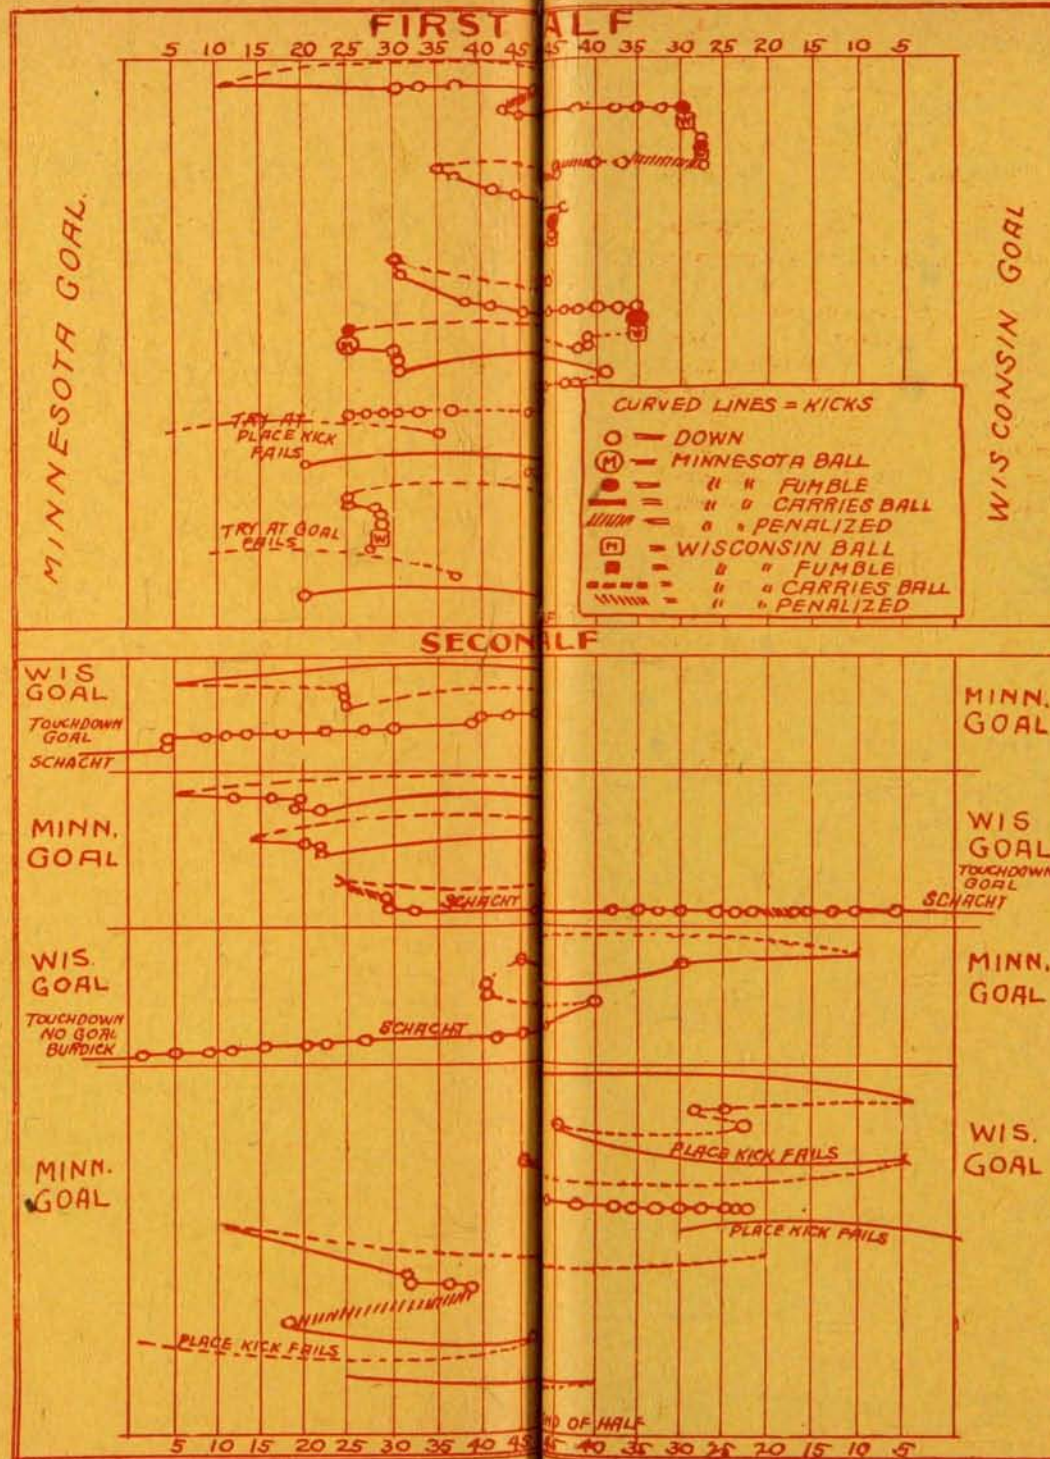 FIRST ALF
5 10 15 20 25 30 35 40 45 45 40 35 30 25 20 15 10 5
MINNESOTA GOAL.
WISCONSIN GOAL
TRY AT
PLACE KICK
FAILS
TRY AT GOAL
FAILS
CURVED LINES = KICKS
DOWN
M MINNESOTA BALL
" " FUMBLE
" " CARRIES BALL
" " PENALIZED
WISCONSIN BALL
" " FUMBLE
" " CARRIES BALL
" " PENALIZED
SECON ALF
WIS
GOAL
TOUCHDOWN
GOAL
SCHACHT
MINN.
GOAL
MINN.
GOAL
SCHACHT
WIS
GOAL
TOUCHDOWN
GOAL
SCHACHT
WIS.
GOAL
TOUCHDOWN
NO GOAL
BURDICK
SCHACHT
MINN.
GOAL
MINN.
GOAL
PLACE KICK FAILS
WIS.
GOAL
PLACE KICK FAILS
PLACE KICK FAILS
ND OF HALF
5 10 15 20 25 30 35 40 45 45 40 35 30 25 20 15 10 5